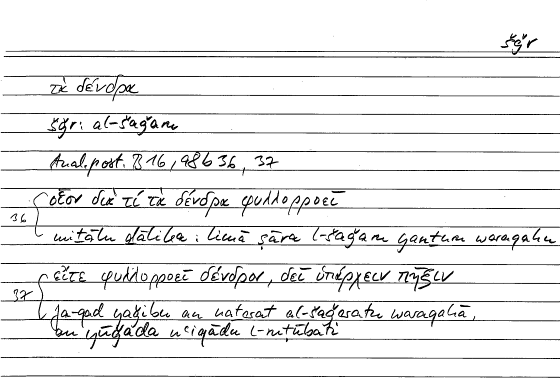 šǧr
τὰ δένδρα
šǧr: al-šaǧaru
Anal. post. B 16, 98b 36, 37
οἷον διὰ τί τὰ δένδρα φυλλορροεῖ
36
miṯālu ḏālika: limā ṣāra l-šaǧaru yanṯuru waraqahu
εἴτε φυλλορροεῖ δένδρον, δεῖ ὑπάρχειν πῆξιν
37
fa-qad yaǧibu an naṯarat al-šaǧaratu waraqahā,
an yūǧada nʿiqādu l-ruṭūbati